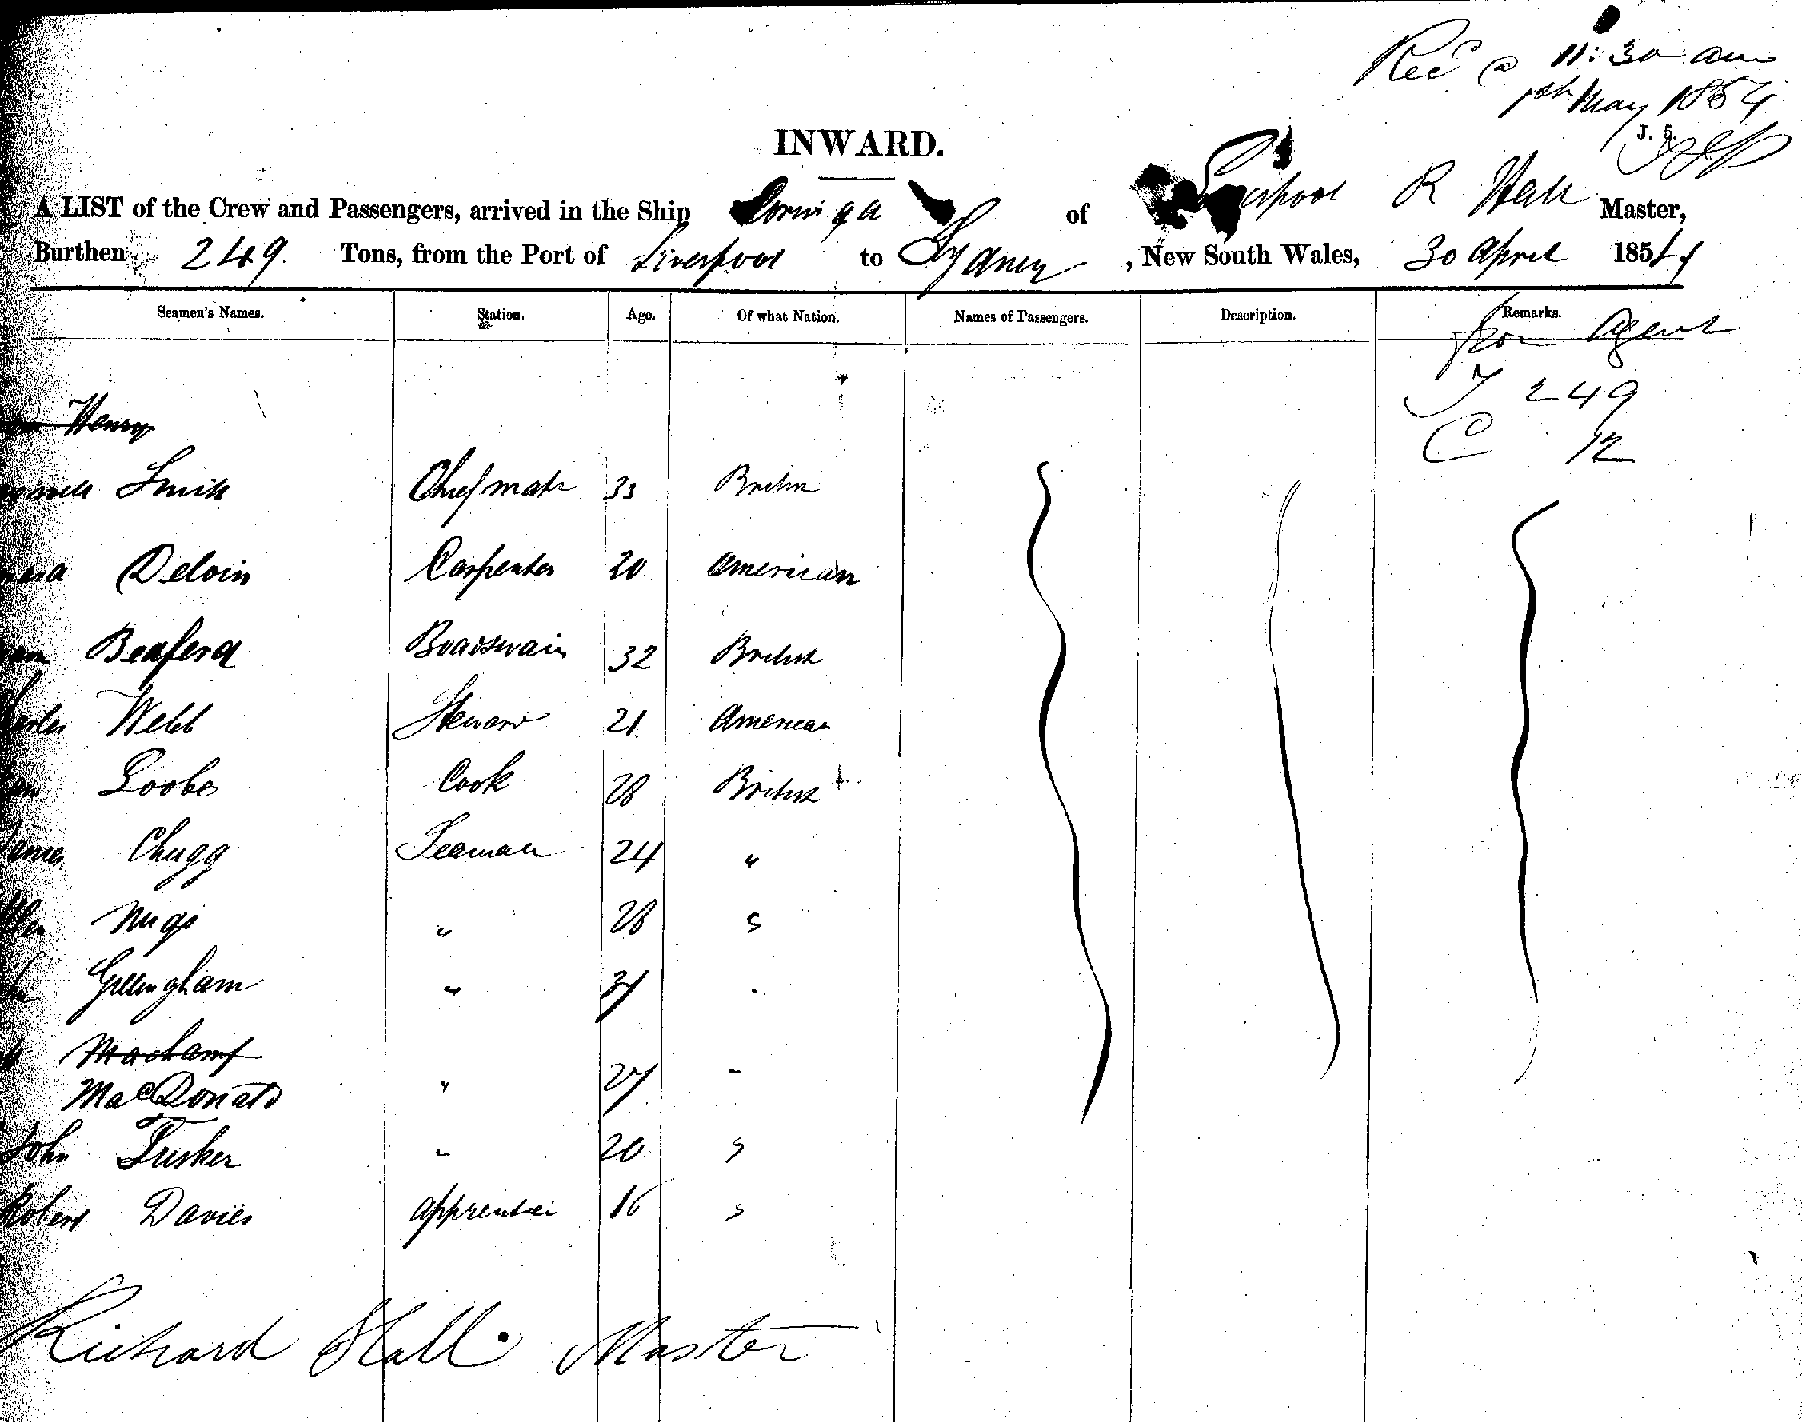 Recd @ 11:30 am
1st May 1854
J. S.
INWARD.
A LIST of the Crew and Passengers, arrived in the Ship of Liverpool R Hall Master,
Burthen 249. Tons, from the Port of Liverpool to Sydney, New South Wales, 30 April 1854
Seamen's Names. Station. Age. Of what Nation. Names of Passengers. Description. Remarks.
from Agent
T 249
C 12
Henry
Smith Chief mate 33 British
Delvin Carpenter 20 American
Benford Boatswain 32 British
Charles Webb Steward 21 American
Cook 28 British
James Chugg Seaman 24 "
" 28 "
Gillingham " 31 "
MacDonald " 27 "
John Tusker " 20 "
Robert Davies Apprentice 16 "
Richard Hall. Master